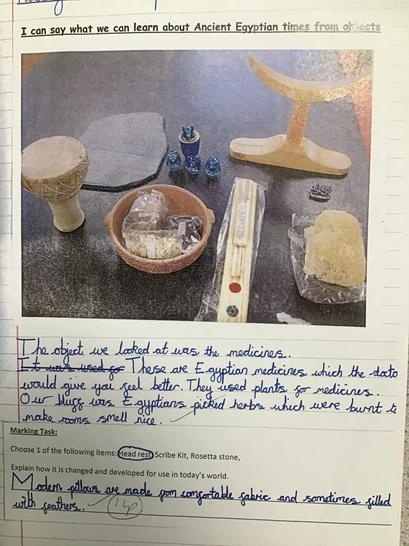 I can say what we can learn about Ancient Egyptian times from objects
The object we looked at was the medicines.
It was used for These are Egyption medicines which the docto
would give you feel better. They used plants for medicines.
Our bluff was Egyptians picked herbs which were burnt to
make rooms smell nice.
Marking Task:
Choose 1 of the following items: Head rest, Scribe Kit, Rosetta stone,
Explain how it is changed and developed for use in today's world.
Modern pillows are made from comfortable fabric and somtimes filled
with feathers.